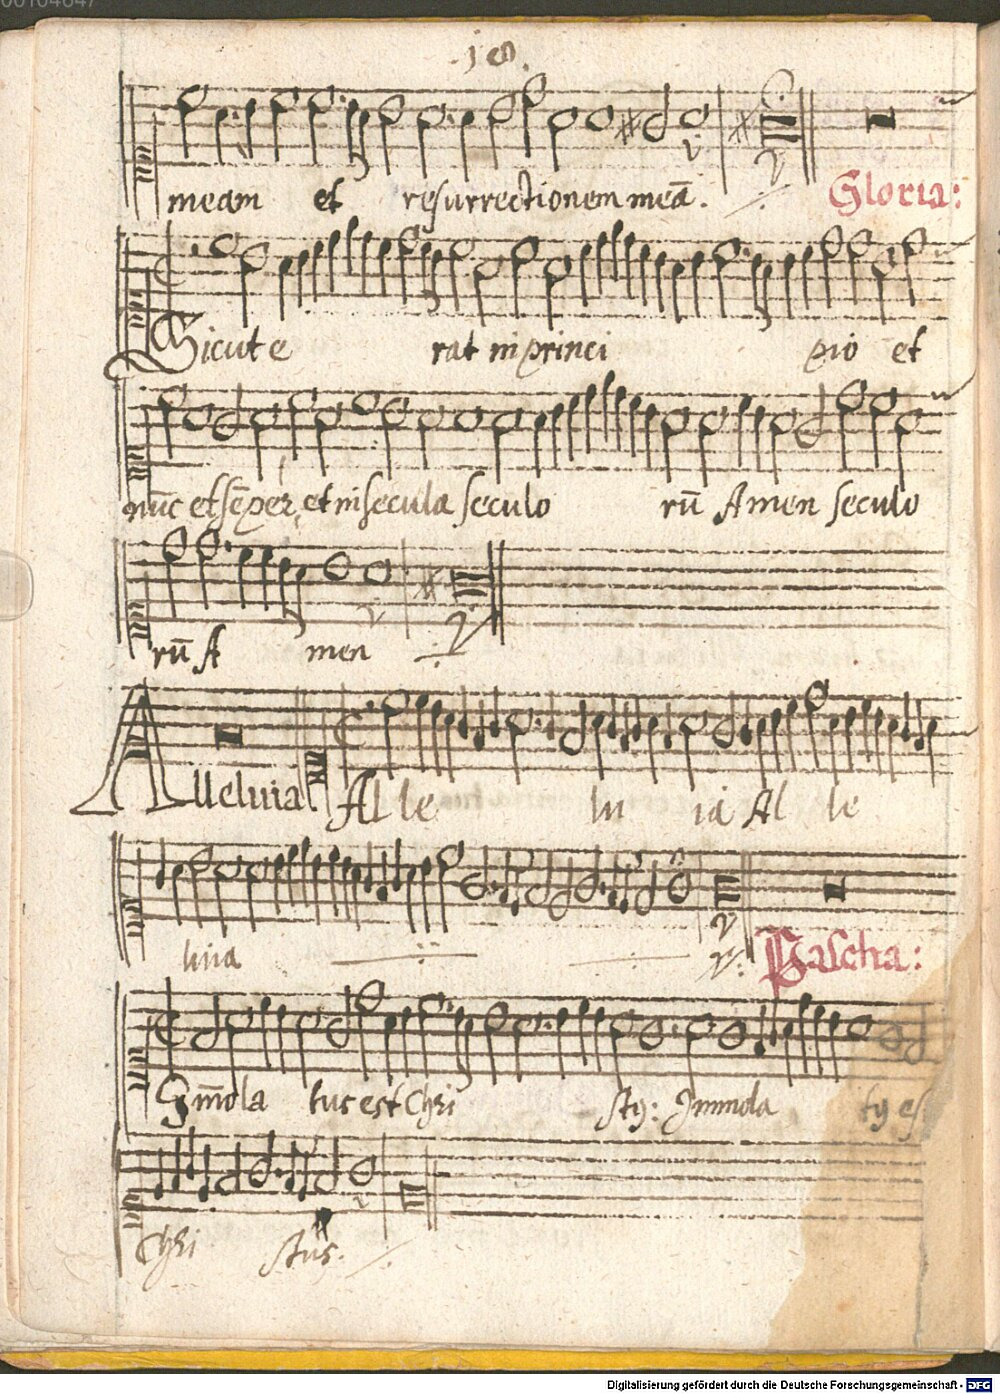 00104647
.18.
meam et resurrectionem meā.
Gloria:
Sicut e rat in princi pio et
nūc et sēper, et in secula seculo rū Amen seculo
rū A men
Alleluia Al le lu ia Al le
luia
Pascha:
Im̄ola tus est Chri stꝰ: Immola tꝰ es
Chri stus.
Digitalisierung gefördert durch die Deutsche Forschungsgemeinschaft - DFG